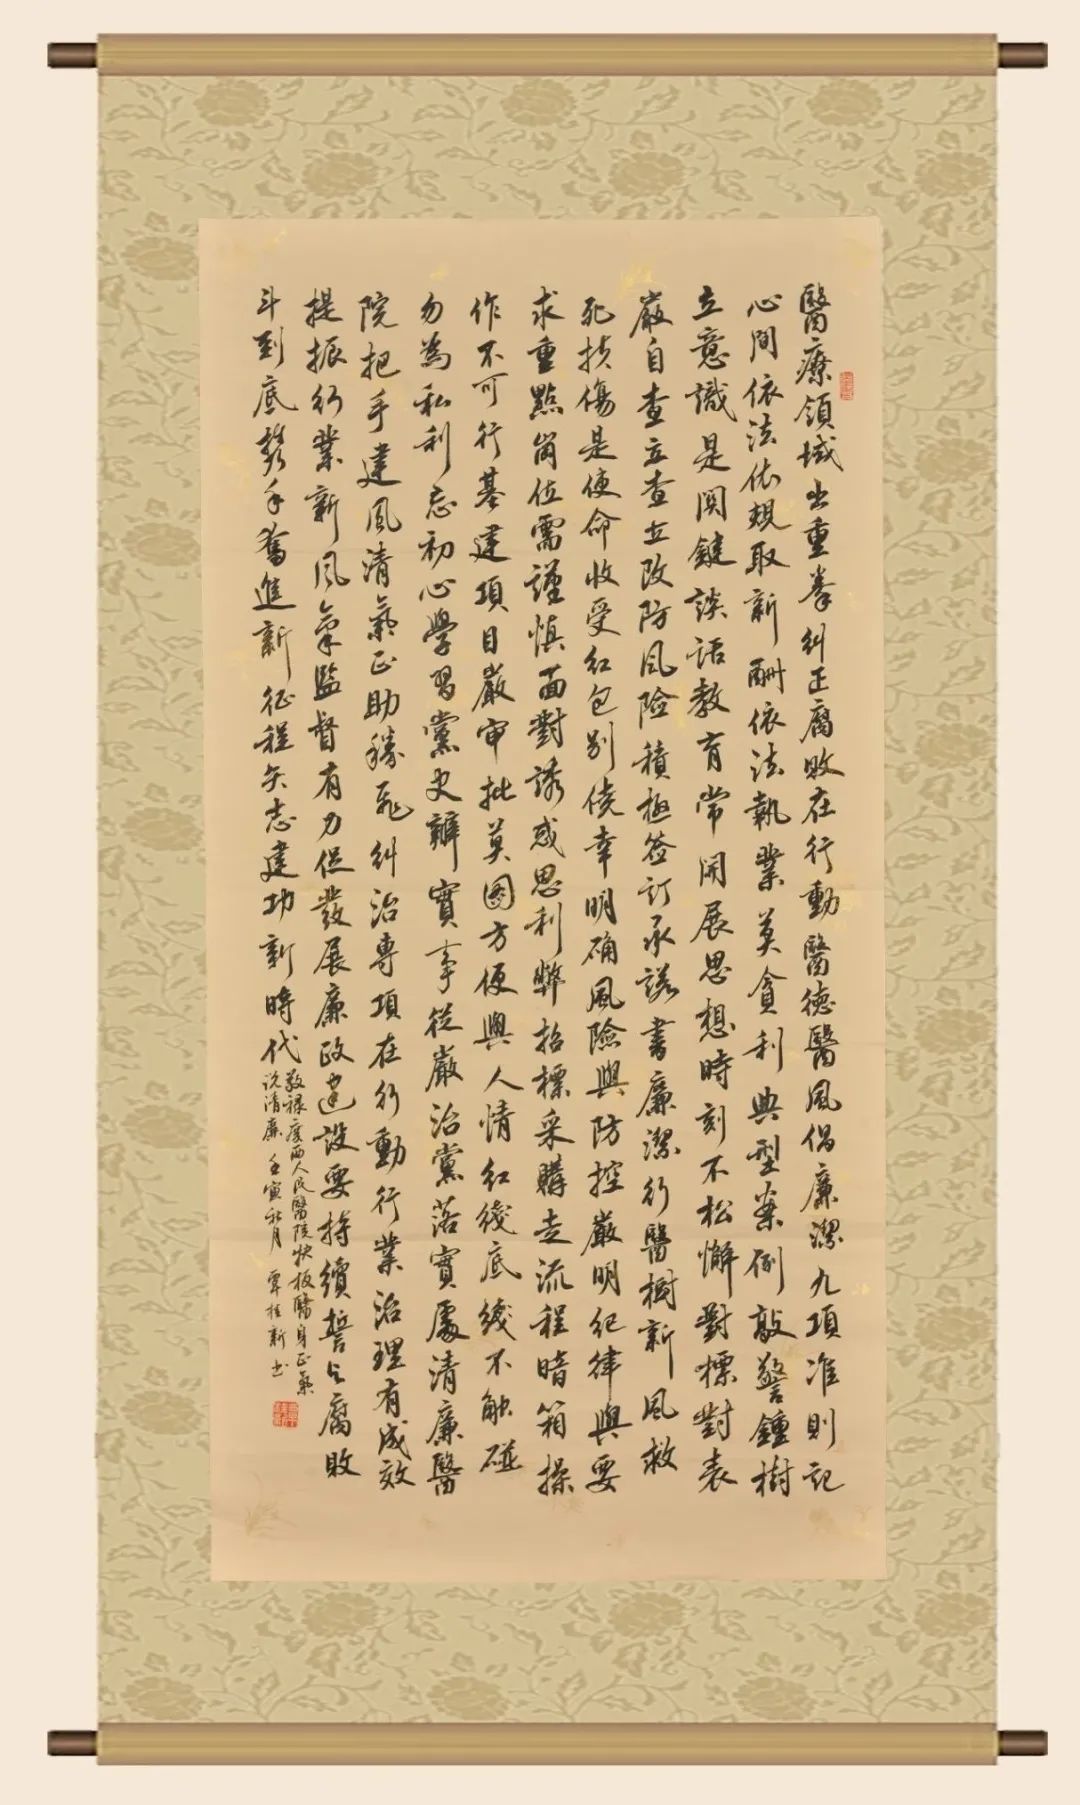 醫療領域出重拳糾正腐敗在行動醫德醫風倡廉潔九項准則記
心間依法依規取薪酬依法執業莫貪利典型案例敲警鍾樹
立意識是関鍵談話教育常開展思想時刻不松懈對標對表
嚴自查立查立改防風险積極签訂承諾書廉潔行醫樹新風救
死扶傷是使命收受红包别僥幸明确風險與防控嚴明紀律與要
求重點崗位需謹慎面對诱惑思利弊招標采購走流程暗箱操
作不可行基建項目嚴审批莫图方便與人情红綫底綫不触碰
勿為私利忘初心學習黨史辦實事從嚴治黨落實處清廉醫
院把手建風清氣正助騰飛糾治專項在行動行業治理有成效
提振行業新風氣監督有力促發展廉政建設要持續誓与腐敗
斗到底携手奮進新征程矢志建功新時代
敬禄度西人民醫院快板醫身正氣
说清廉 壬寅秋月 覃桂新书